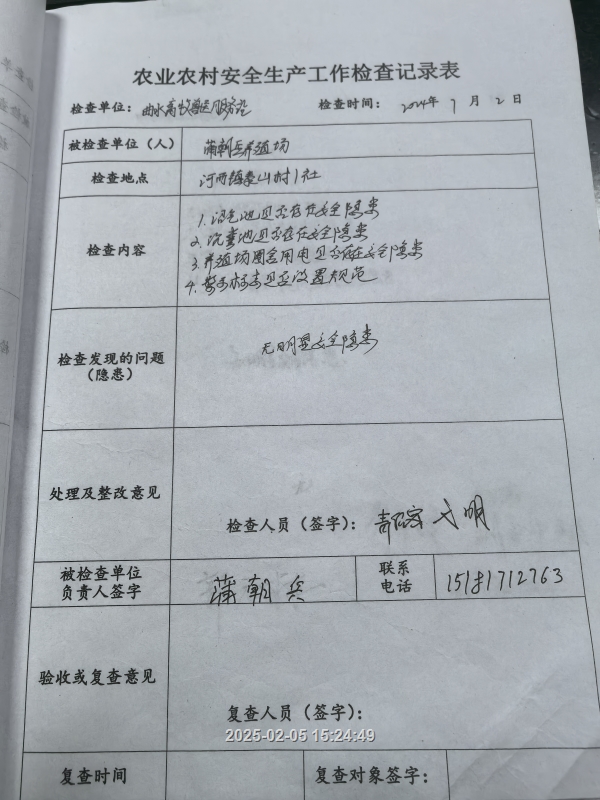 农业农村安全生产工作检查记录表
检查单位：曲水畜牧兽医服务站 检查时间：2024年 7 月 2 日
被检查单位（人） 蒲朝兵养殖场
检查地点 河西镇 山村1社
检查内容
1. 沼气池是否存在安全隐患
2. 沉粪池是否存在安全隐患
3. 养殖场圈舍用电是否存在安全隐患
4. 警示标志是否设置规范
检查发现的问题
（隐患）
无明显安全隐患
处理及整改意见
检查人员（签字）：
被检查单位
负责人签字
蒲朝兵
联系
电话
15181712763
验收或复查意见
复查人员（签字）：
2025-02-05 15:24:49
复查时间 复查对象签字：